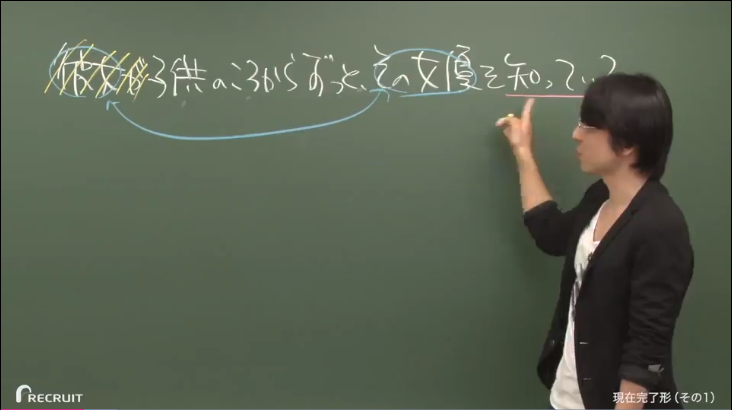 彼女が子供のころからずっと、その女優を知ってい
RECRUIT
現在完了形(その1)